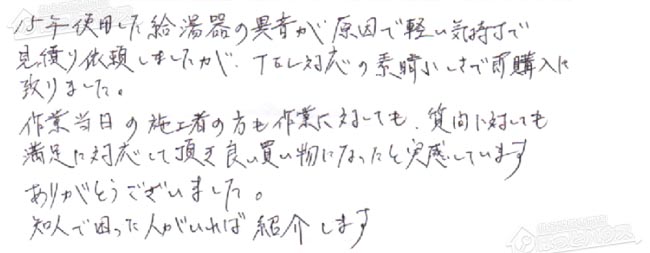 15年使用した給湯器の異音が原因で軽い気持ちで
見積り依頼しましたが、TEL対応の素晴しさで即購入に
致りました。
作業当日の施工者の方も作業に対しても、質問に対しても
満足に対応して頂き良い買い物になったと実感しています
ありがとうございました。
知人で困った人がいれば紹介します